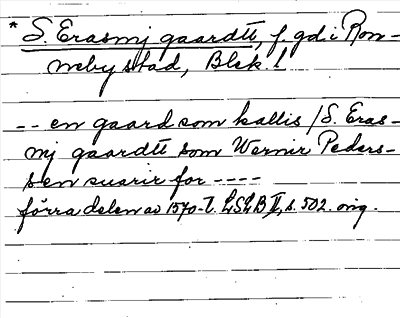 * S. Erasmj gaardtt, f. gd. i Ron-
neby stad, Blek. l
-- en gaard som kallis / S. Eras-
mj gaardtt som Wernir Peders-
sen suarir for ----
förra delen av 1570-t. LSLB II, s. 502. orig.